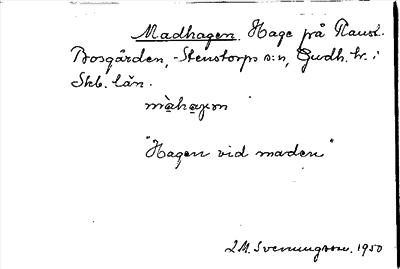 Madhagen. Hage på
Bosgården, Stenstorps s:n, Gudh. hr. i
Skb. län.
"Hagen vid maden"
Sveningsson. 1950